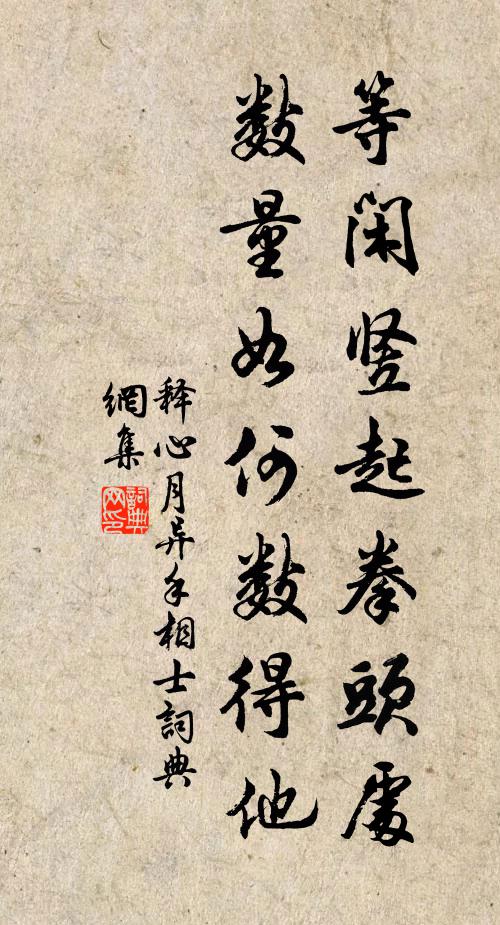 等閑竖起拳頭處
數量如何數得他
释心月异手相士詞典
網集
詞典
网印